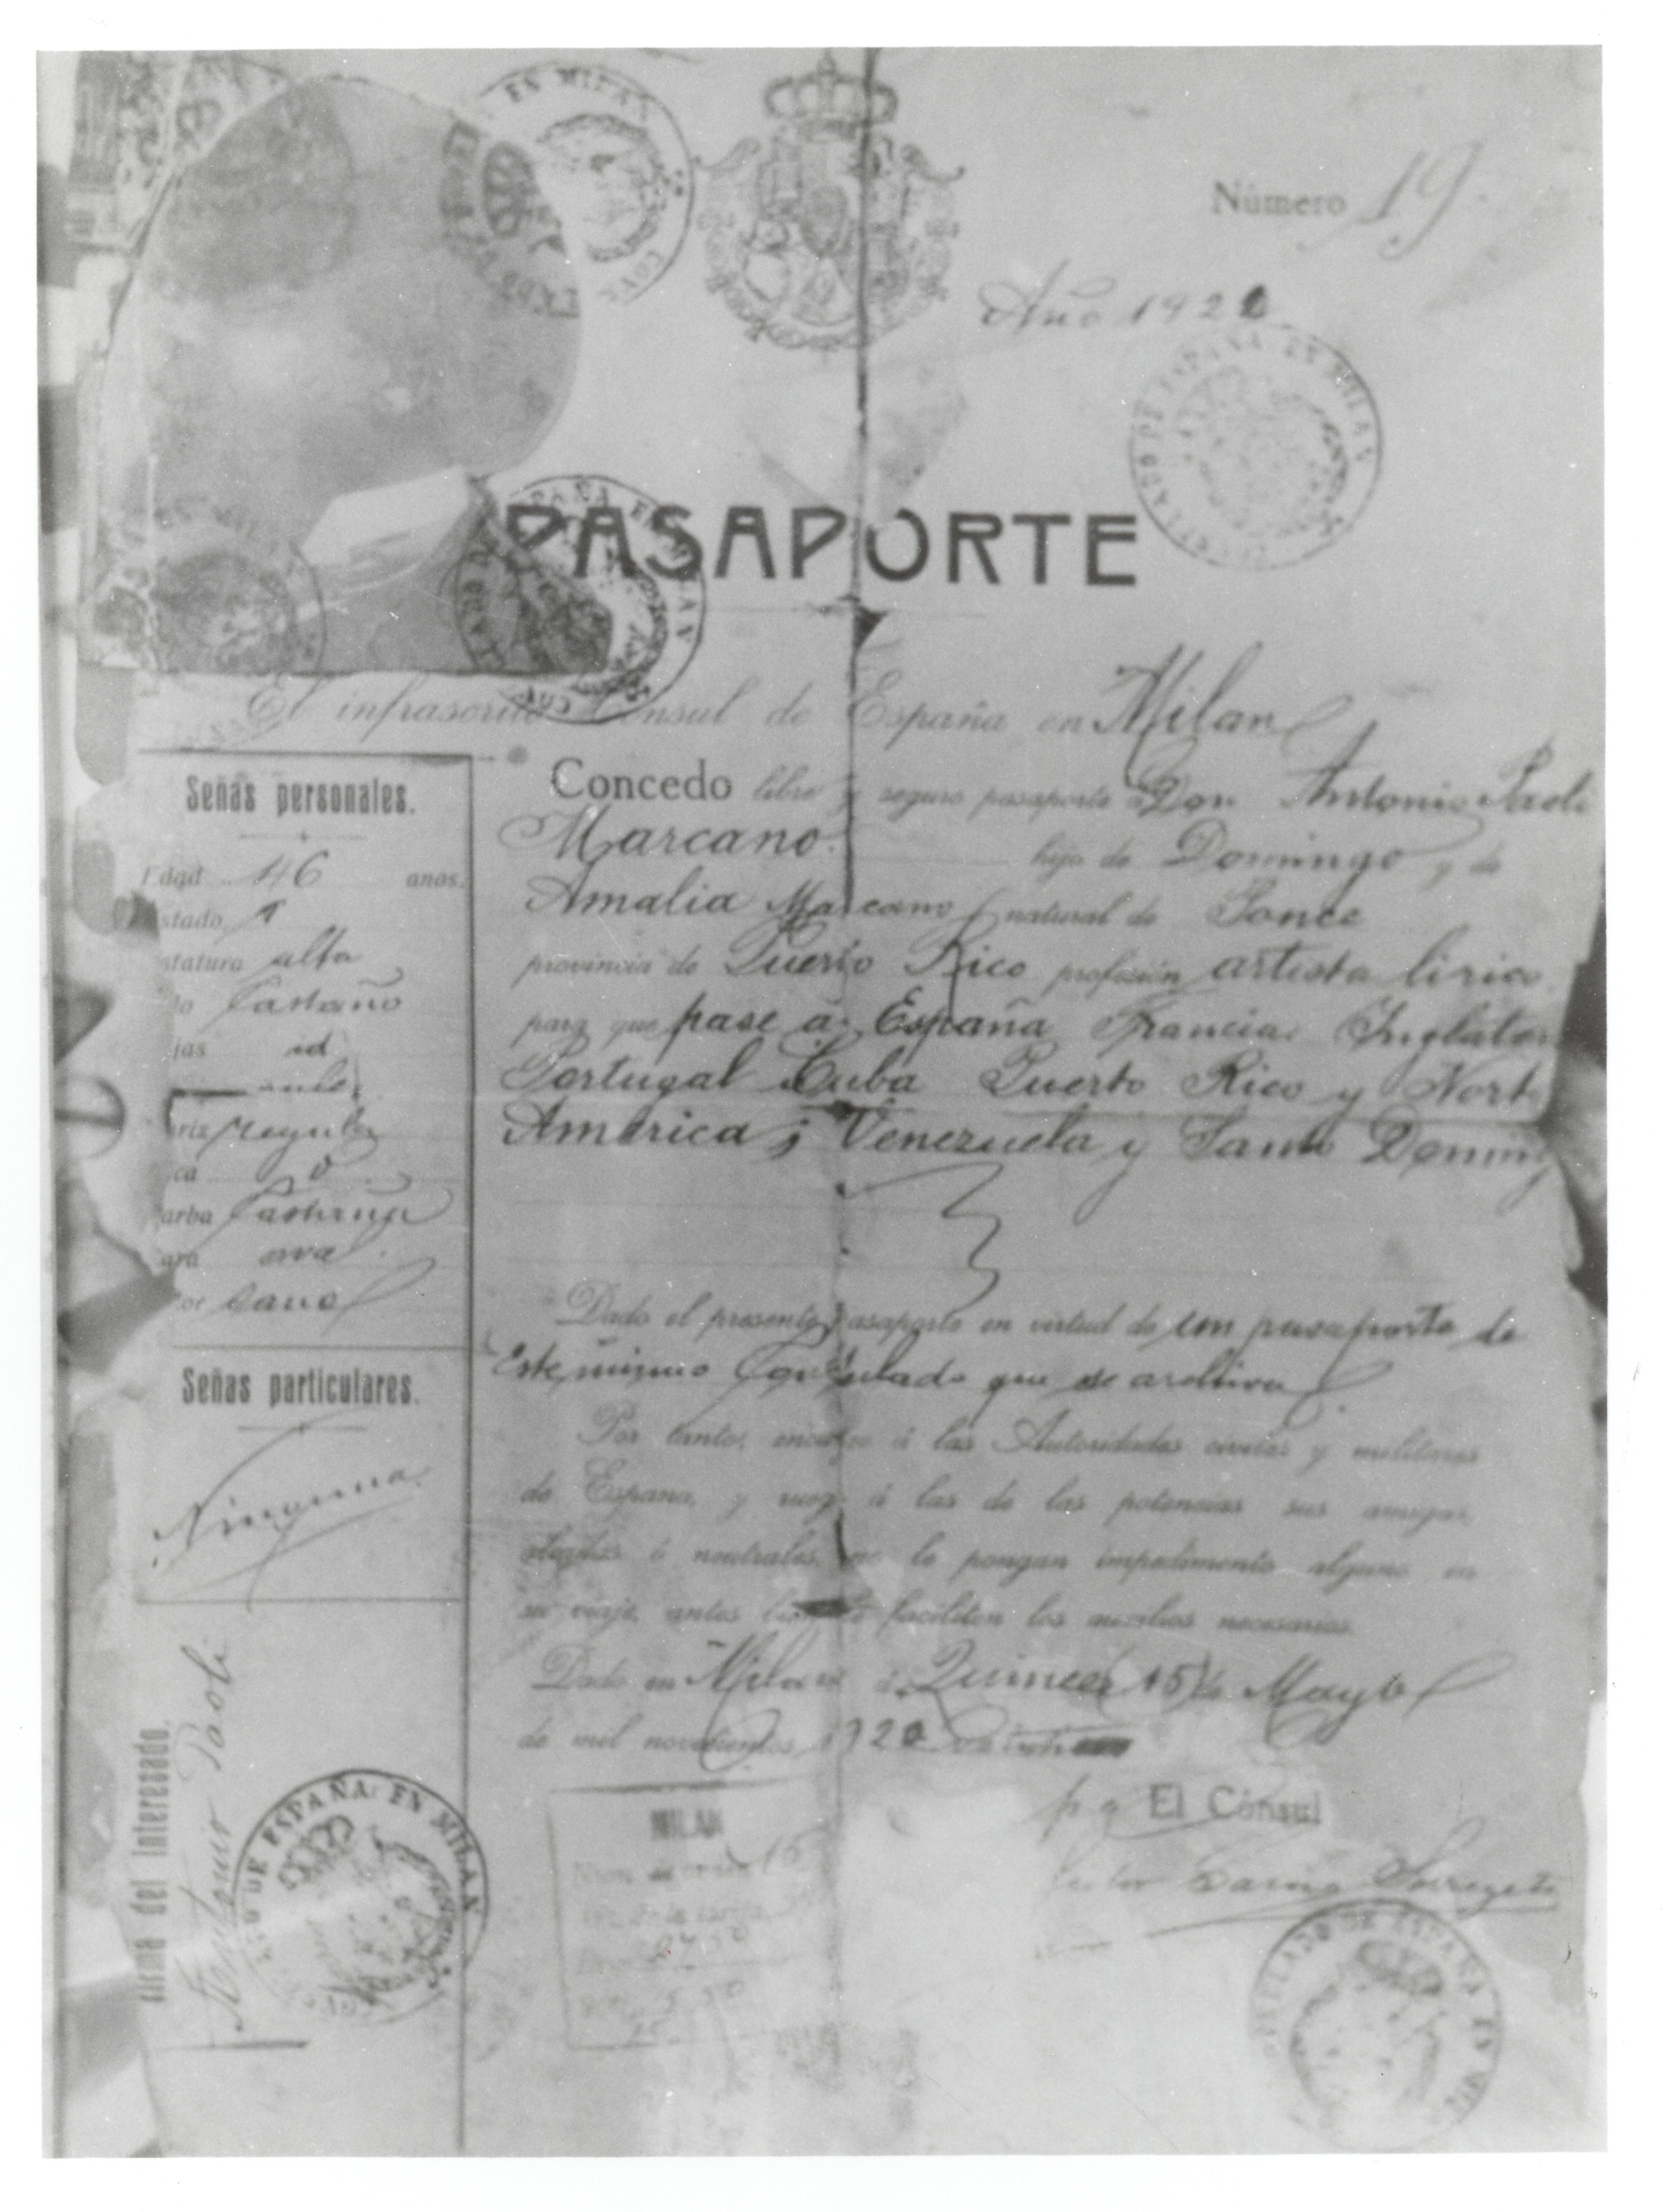 EN MILAN
Número 19.
Año 192
CONSULADO DE ESPAÑA EN MILAN
PASAPORTE
ESPAÑA EN MILAN
El infrascrito Consul de España en Milan
Concedo libre y seguro pasaporte a Don Antonio Paoli
Marcano. hijo de Domingo y de
Amalia Marcano natural de Ponce
provincia de Puerto Rico profesión artista lirico
para que pase á España Francia Inglater
Portugal Cuba Puerto Rico y Norte
America; Venezuela y Santo Doming
Dado el presente pasaporte en virtud de un pasaporte de
Este mismo Consulado que se archiva
Por tanto, encargo á las Autoridades civiles y militares
de España, y ruego á las de las potencias sus amigas,
aliadas ó neutrales, no le pongan impedimento alguno en
su viaje, antes bien le faciliten los auxilios necesarios.
Dado en Milan á Quince (15) de Mayo
de mil novecientos 192
Señas personales.
Edad 46 años.
stado
statura alta
lo Castaño
jas id
ariz regular
ca
arba Castaña
ara
or sano
Señas particulares.
Ninguna
Firma del interesado.
Antonio Paoli
DE ESPAÑA EN MILAN
MILAN
El Cónsul
CONSULADO DE ESPAÑA EN MIL